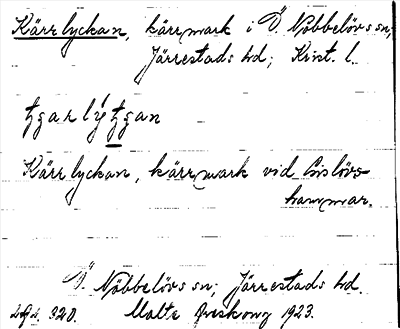 Kärrlyckan, kärrmark i Ö. Nöbbelövs sn;
Järrestads hd; Krist. l.
tʒarlýtʒan
Kärrlyckan, kärrmark vid Gislövs
hammar.
Ö. Nöbbelövs sn; Järrestads hd.
Malte Areskoug 1923.